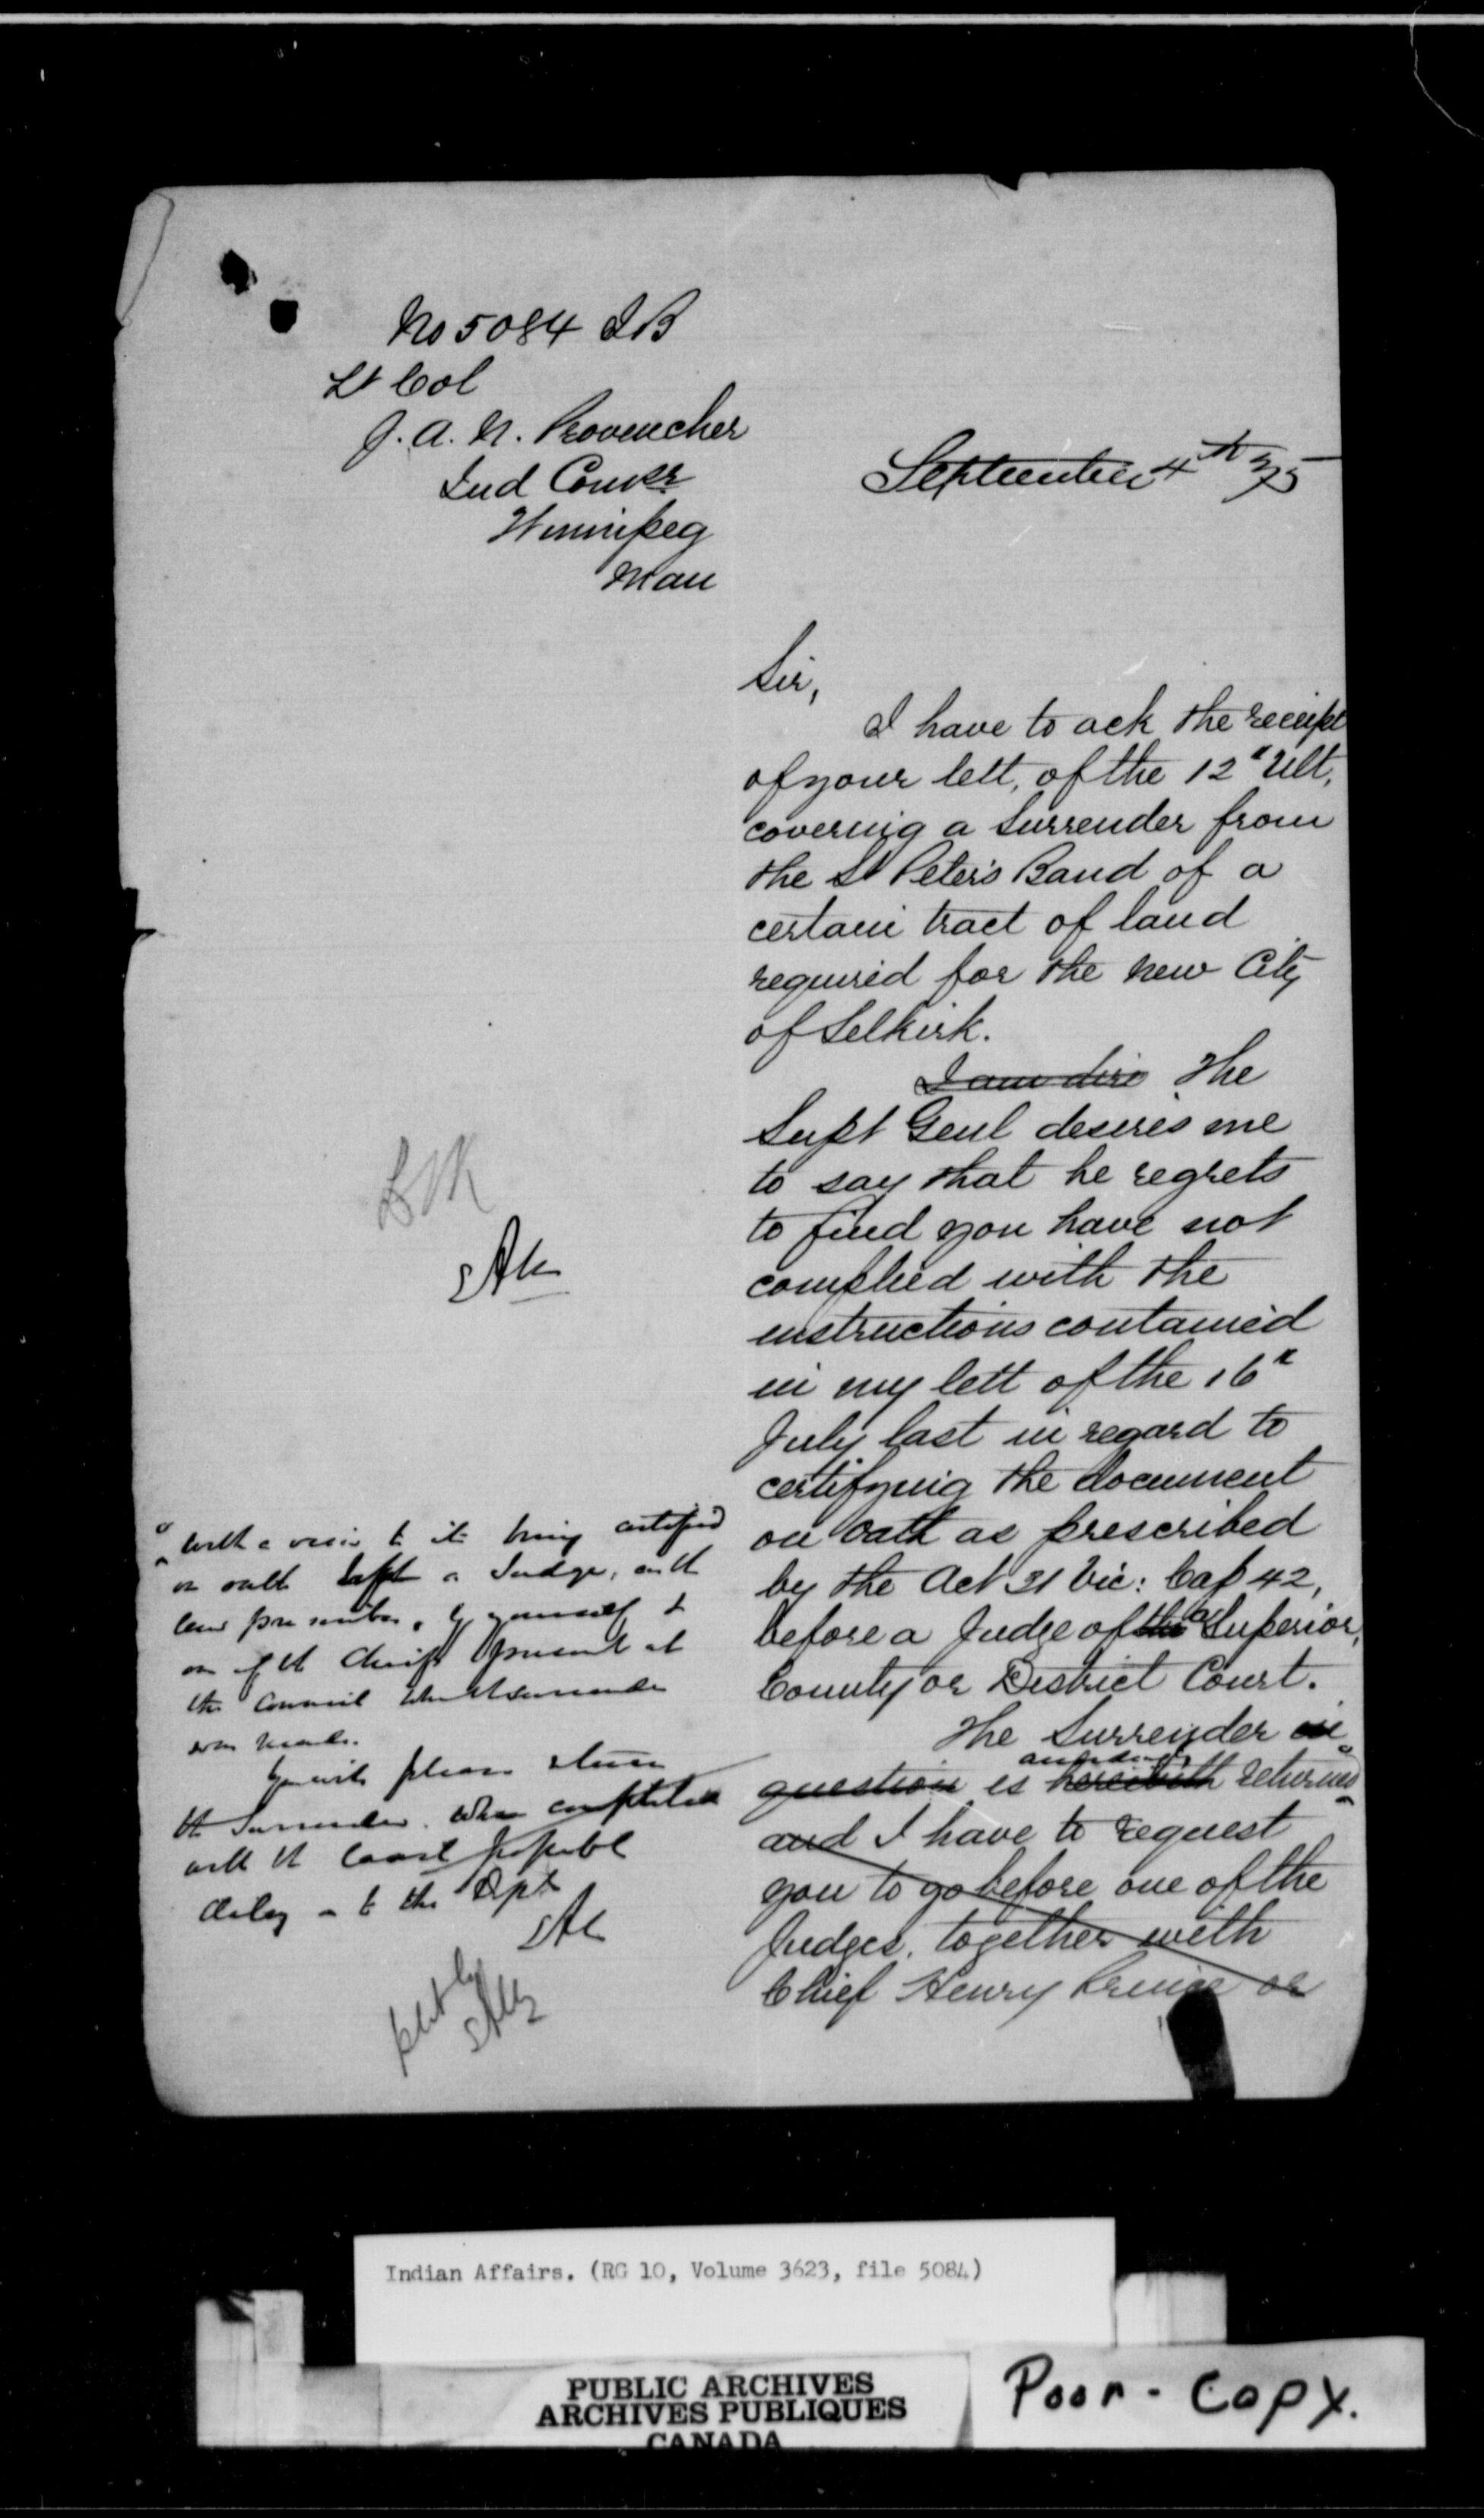 No 5084 I B
Lt Col
J. A. N. Provencher
Ind Comsr
Winnipeg
Man
September 4th 75
Sir,
I have to ack the receipt
of your lett, of the 12" Ult,
covering a Surrender from
the St Peter's Band of a
certain tract of land
required for the new City
of Selkirk.
I am dire The
Supt Genl desires me
to say that he regrets
to find you have not
complied with the
instructions contained
in my lett of the 16"
July last in regard to
certifying the document
on oath as prescribed
by the Act 31 Vic: Cap 42,
before a Judge of the Superior,
County or District Court.
The Surrender in
question is herewith returned
and I have to request
you to go before one of the
Judges, together with
Chief Henry Prince or
with a view to its being certified
on oath before a Judge, as the
law prescribes, by yourself &
one of the Chiefs present at
the Council when the surrender
was made.
You will please return
the Surrender when completed
with the least possible
delay to the Dept
Indian Affairs. (RG 10, Volume 3623, file 5084)
PUBLIC ARCHIVES
ARCHIVES PUBLIQUES
CANADA
Poor - Copy.